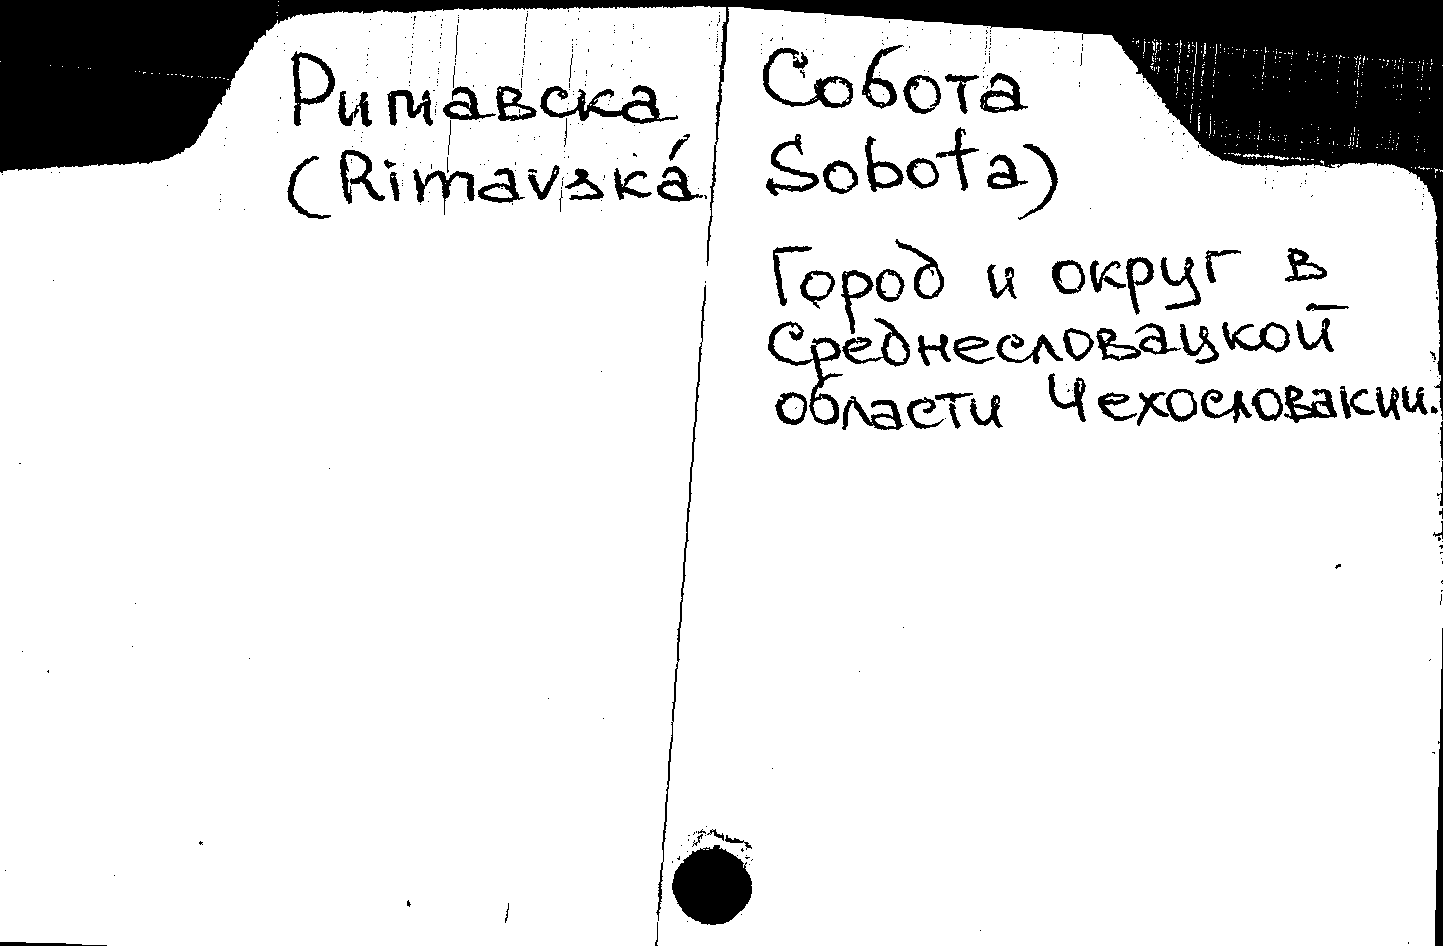 Римавска Собота
(Rimavská Sobota)
Город и округ в
Среднесловацкой
области Чехословакии.